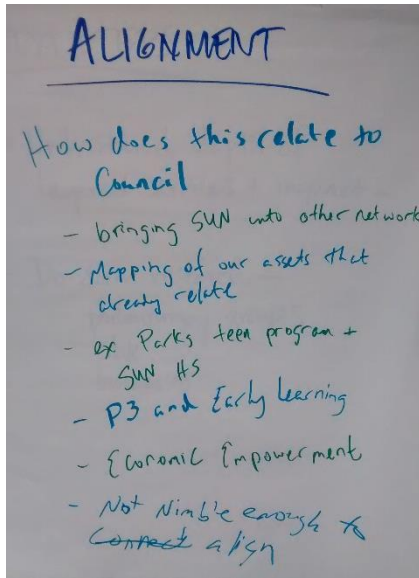 ALIGNMENT
How does this relate to
Council
- bringing SUN into other network
- Mapping of our assets that
already relate
- ex Parks teen program +
SUN HS
- P3 and Early Learning
- Economic Empowerment
- Not Nimble enough to
Connect align